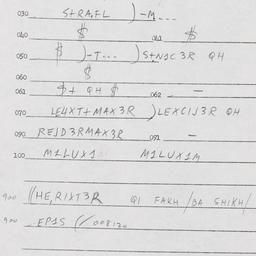 030 S+RA,FL )-M...
040 $ 041 $
050 $ )-T... )S+N1C3R QH
060 $
061 $+ QH $ 062 —
070 LE4XT+MAX3R )LEXC1J3R QH
090 RE1D3RMAX3R 091 —
100 M1LUX1 M1LUX1M
900 ((HE,R1XT3R Q1 FAKH/BA SHIKH/
900 EP1S (/008120